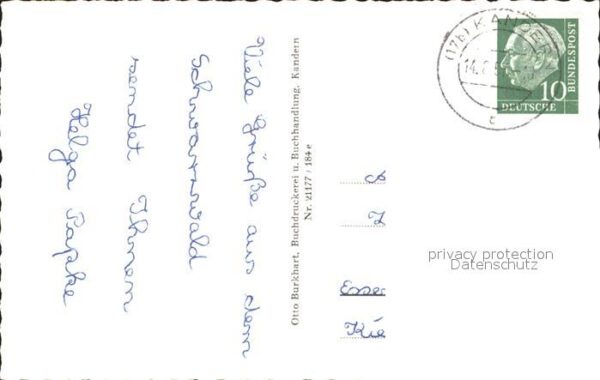 Viele Grüße aus dem
Schwarzwald
sendet Ihnen
Helga Papke
Otto Burkhart, Buchdruckerei u. Buchhandlung, Kandern
Nr. 21177 / 184e
(17b) KANDER
10
DEUTSCHE
BUNDESPOST
Esse
Kie
privacy protection
Datenschutz